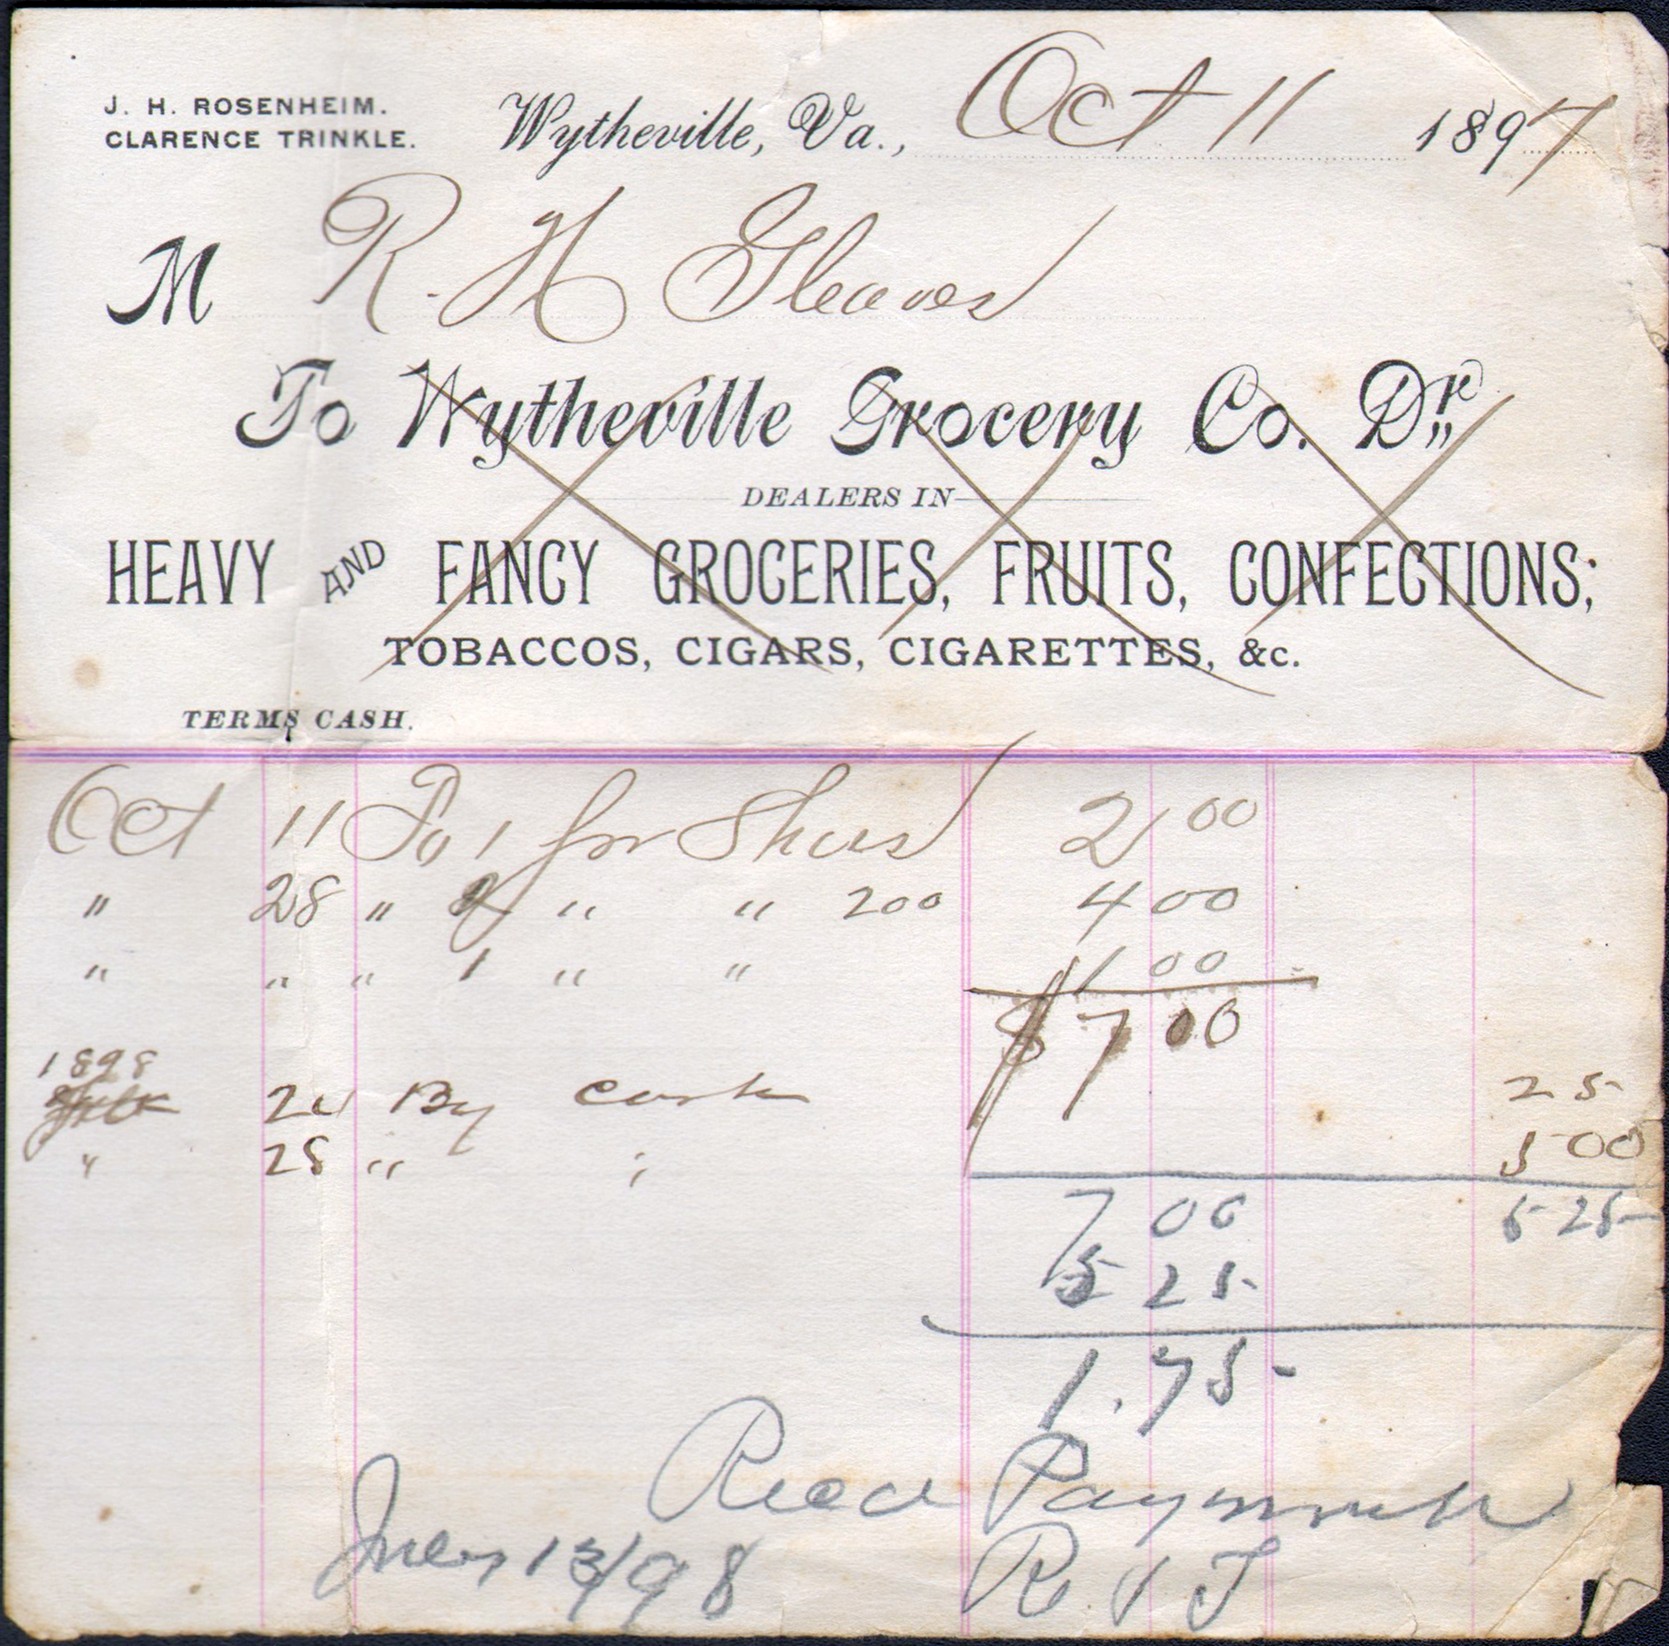 J. H. ROSENHEIM.
CLARENCE TRINKLE.
Wytheville, Va., Oct 11 1897
M R. H Gleaves
To Wytheville Grocery Co. Dr.
DEALERS IN
HEAVY AND FANCY GROCERIES, FRUITS, CONFECTIONS;
TOBACCOS, CIGARS, CIGARETTES, &c.
TERMS CASH.
Oct 11 To 1 pr Shoes 2 00
" 28 " 2 " " 200 4 00
" " " 1 " " 1 00
$ 7 00
1898
By cash 25
" 28 " " 5 00
7 00 5 25
5 25
1.75
Recd Payment
13/98 R & T